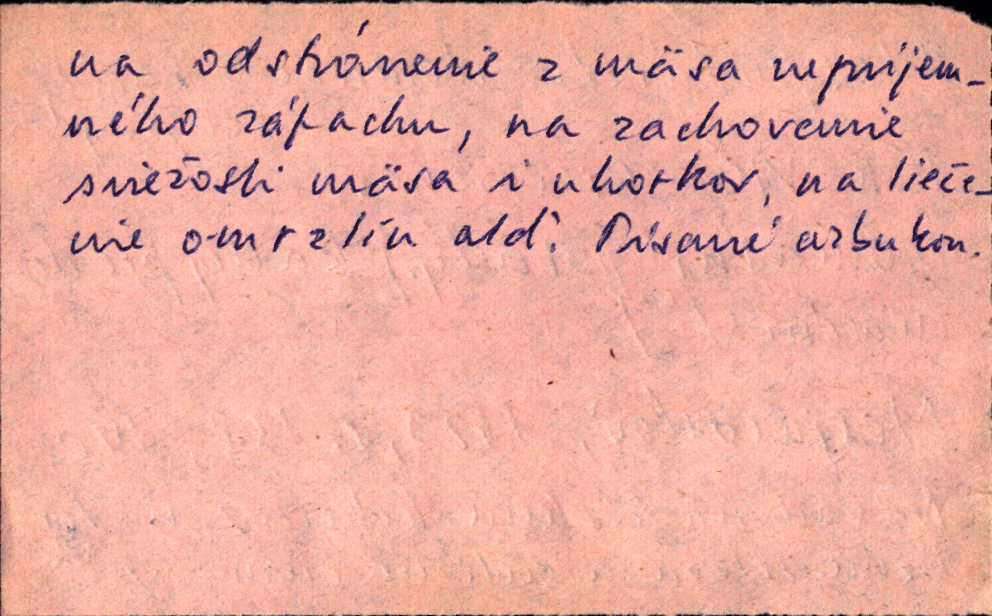 na odstránenie z mäsa neprijem-
ného zápachu, na zachovanie
sviežosti mäsa i uhorkov, na lieče-
nie omrzlín atď. Písané azbukou.